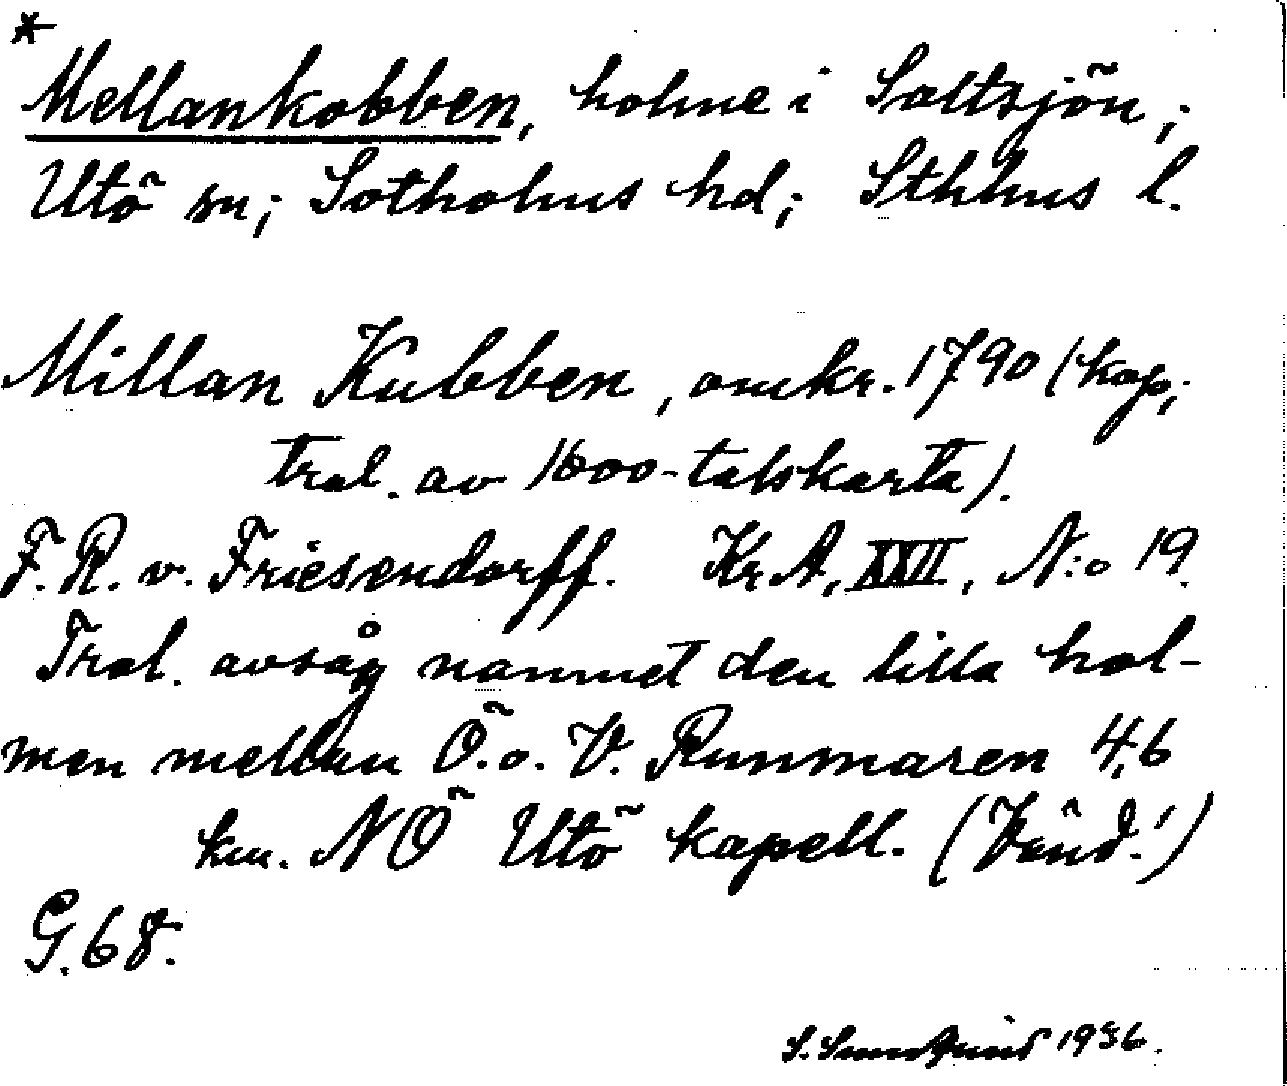 *
Mellankobben, holme i Saltsjön,;
Utö sn; Sotholms hd; Sthlms l.
Millan Kubben, omkr. 1790 (kop,;
trol. av 1600-talskarta).
F. R. v. Friesendorff. KrA, XXII, N:o 19.
Trol. avsåg namnet den lilla hol-
men mellan Ö. o. V. Runmaren 4,6
km. NÖ Utö kapell. (Vänd!)
G. 68.
S. 1936.